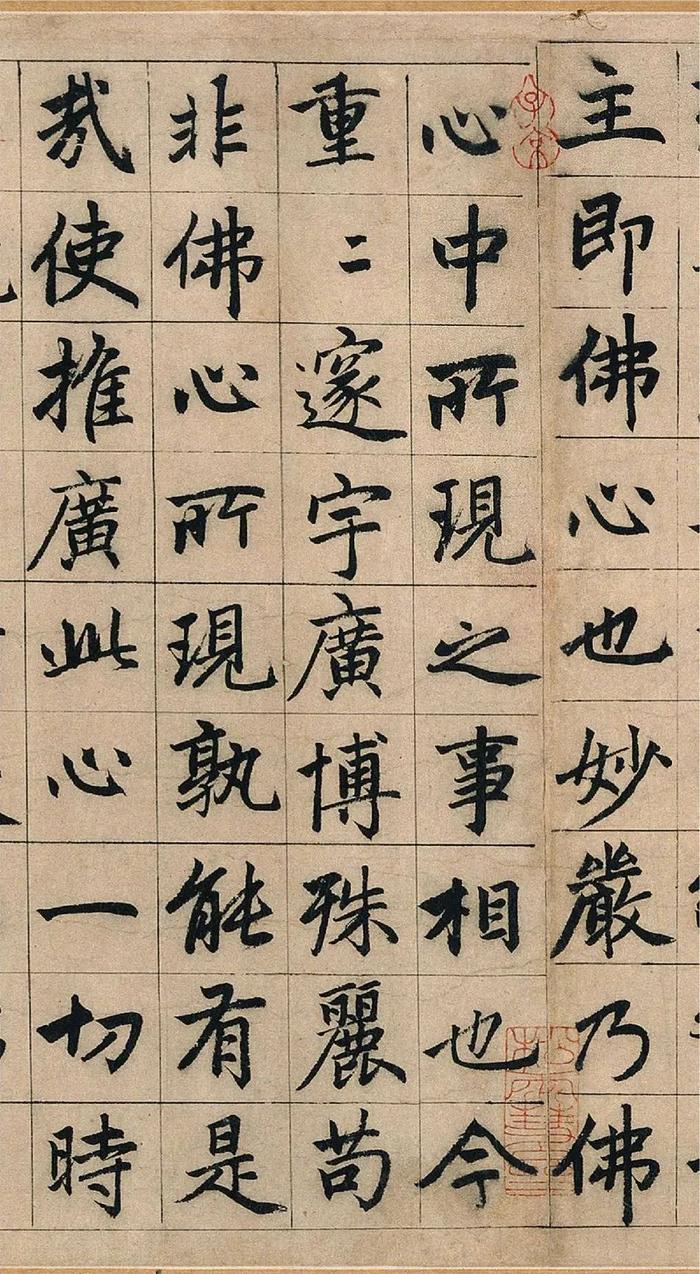 主即佛心也妙嚴乃佛
心中所現之事相也今
重二邃宇廣博殊麗苟
非佛心所現孰能有是
㢤使推廣此心一切時